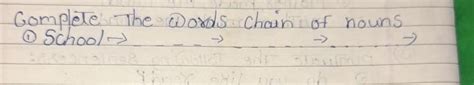 Complete The Words chain of nouns
① School→ _ _ _ _ → _ _ _ _ → _ _ _ _ →